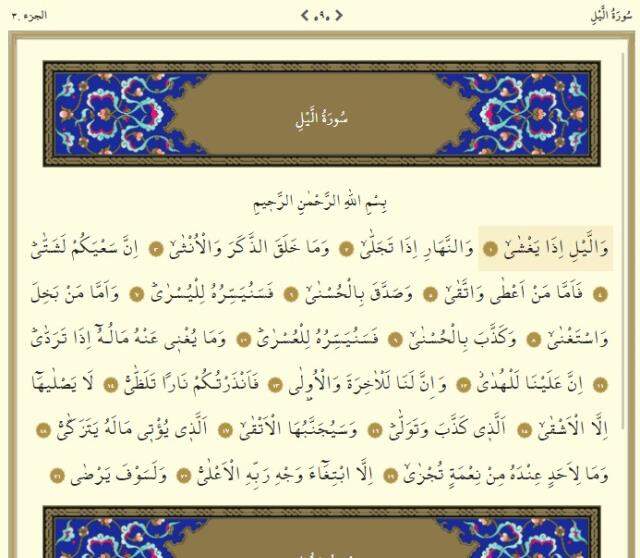 سُورَةُ الَّيْلِ
٥٩٠
الجزء ٣٠
سُورَةُ الَّيْلِ
بِسْمِ اللهِ الرَّحْمٰنِ الرَّحِيمِ
وَالَّيْلِ اِذَا يَغْشٰىۙ ١ وَالنَّهَارِ اِذَا تَجَلّٰىۙ ٢ وَمَا خَلَقَ الذَّكَرَ وَالْاُنْثٰىۙ ٣ اِنَّ سَعْيَكُمْ لَشَتّٰىۜ
٤ فَاَمَّا مَنْ اَعْطٰى وَاتَّقٰىۙ ٥ وَصَدَّقَ بِالْحُسْنٰىۙ ٦ فَسَنُيَسِّرُهُ لِلْيُسْرٰىۜ ٧ وَاَمَّا مَنْ بَخِلَ
وَاسْتَغْنٰىۙ ٨ وَكَذَّبَ بِالْحُسْنٰىۙ ٩ فَسَنُيَسِّرُهُ لِلْعُسْرٰىۜ ١٠ وَمَا يُغْنٖي عَنْهُ مَالُـهُٓ اِذَا تَرَدّٰىۜ
١١ اِنَّ عَلَيْنَا لَلْهُدٰىۘ ١٢ وَاِنَّ لَنَا لَلْاٰخِرَةَ وَالْاُو۫لٰى ١٣ فَاَنْذَرْتُكُمْ نَارًا تَلَظّٰىۚ ١٤ لَا يَصْلٰيهَٓا
اِلَّا الْاَشْقٰىۙ ١٥ اَلَّذٖي كَذَّبَ وَتَوَلّٰىۜ ١٦ وَسَيُجَنَّبُهَا الْاَتْقٰىۙ ١٧ اَلَّذٖي يُؤْتٖي مَالَهُ يَتَزَكّٰىۚ ١٨
وَمَا لِاَحَدٍ عِنْدَهُ مِنْ نِعْمَةٍ تُجْزٰىۙ ١٩ اِلَّا ابْتِغَٓاءَ وَجْهِ رَبِّهِ الْاَعْلٰىۚ ٢٠ وَلَسَوْفَ يَرْضٰى ٢١